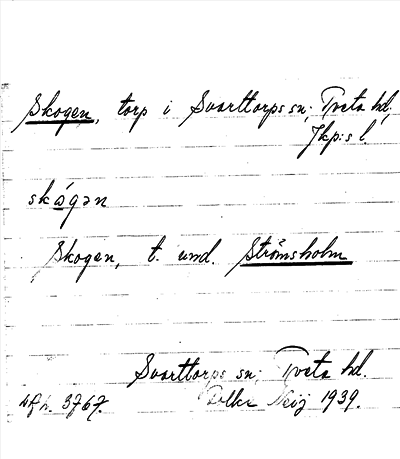 Skogen, torp i Svarttorps sn; Tveta hd,
Jkp:s l.
skógən
Skogen, t. und. Strömsholm
Svarttorps sn; Tveta hd.
3767. 1939.